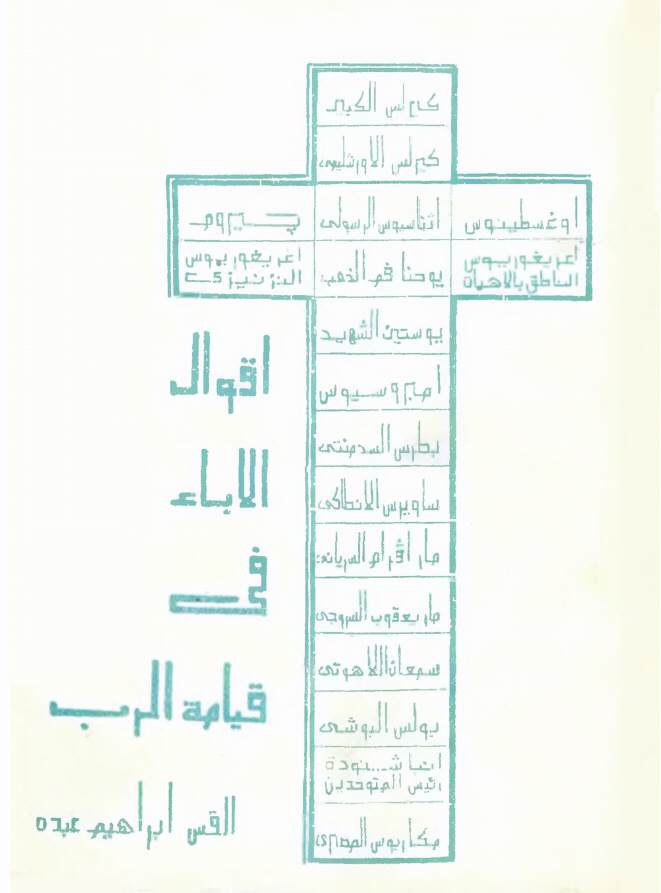 كيرلس الكبير
كيرلس الاورشليمى
اوغسطينوس
اثناسيوس الرسولى
جيروم
اغريغوريوس
الناطق بالالهيات
يوحنا فم الذهب
اغريغوريوس
النزينزى
يوستين الشهيد
امبروسيوس
بطرس السدمنتى
ساويرس الانطاكى
مار افرام السريانى
مار يعقوب السروجى
سمعان اللاهوتى
بولس البوشى
انبا شنودة
رئيس المتوحدين
مكاريوس المصرى
اقوال
الاباء
فى
قيامة الرب
القس ابراهيم عبده